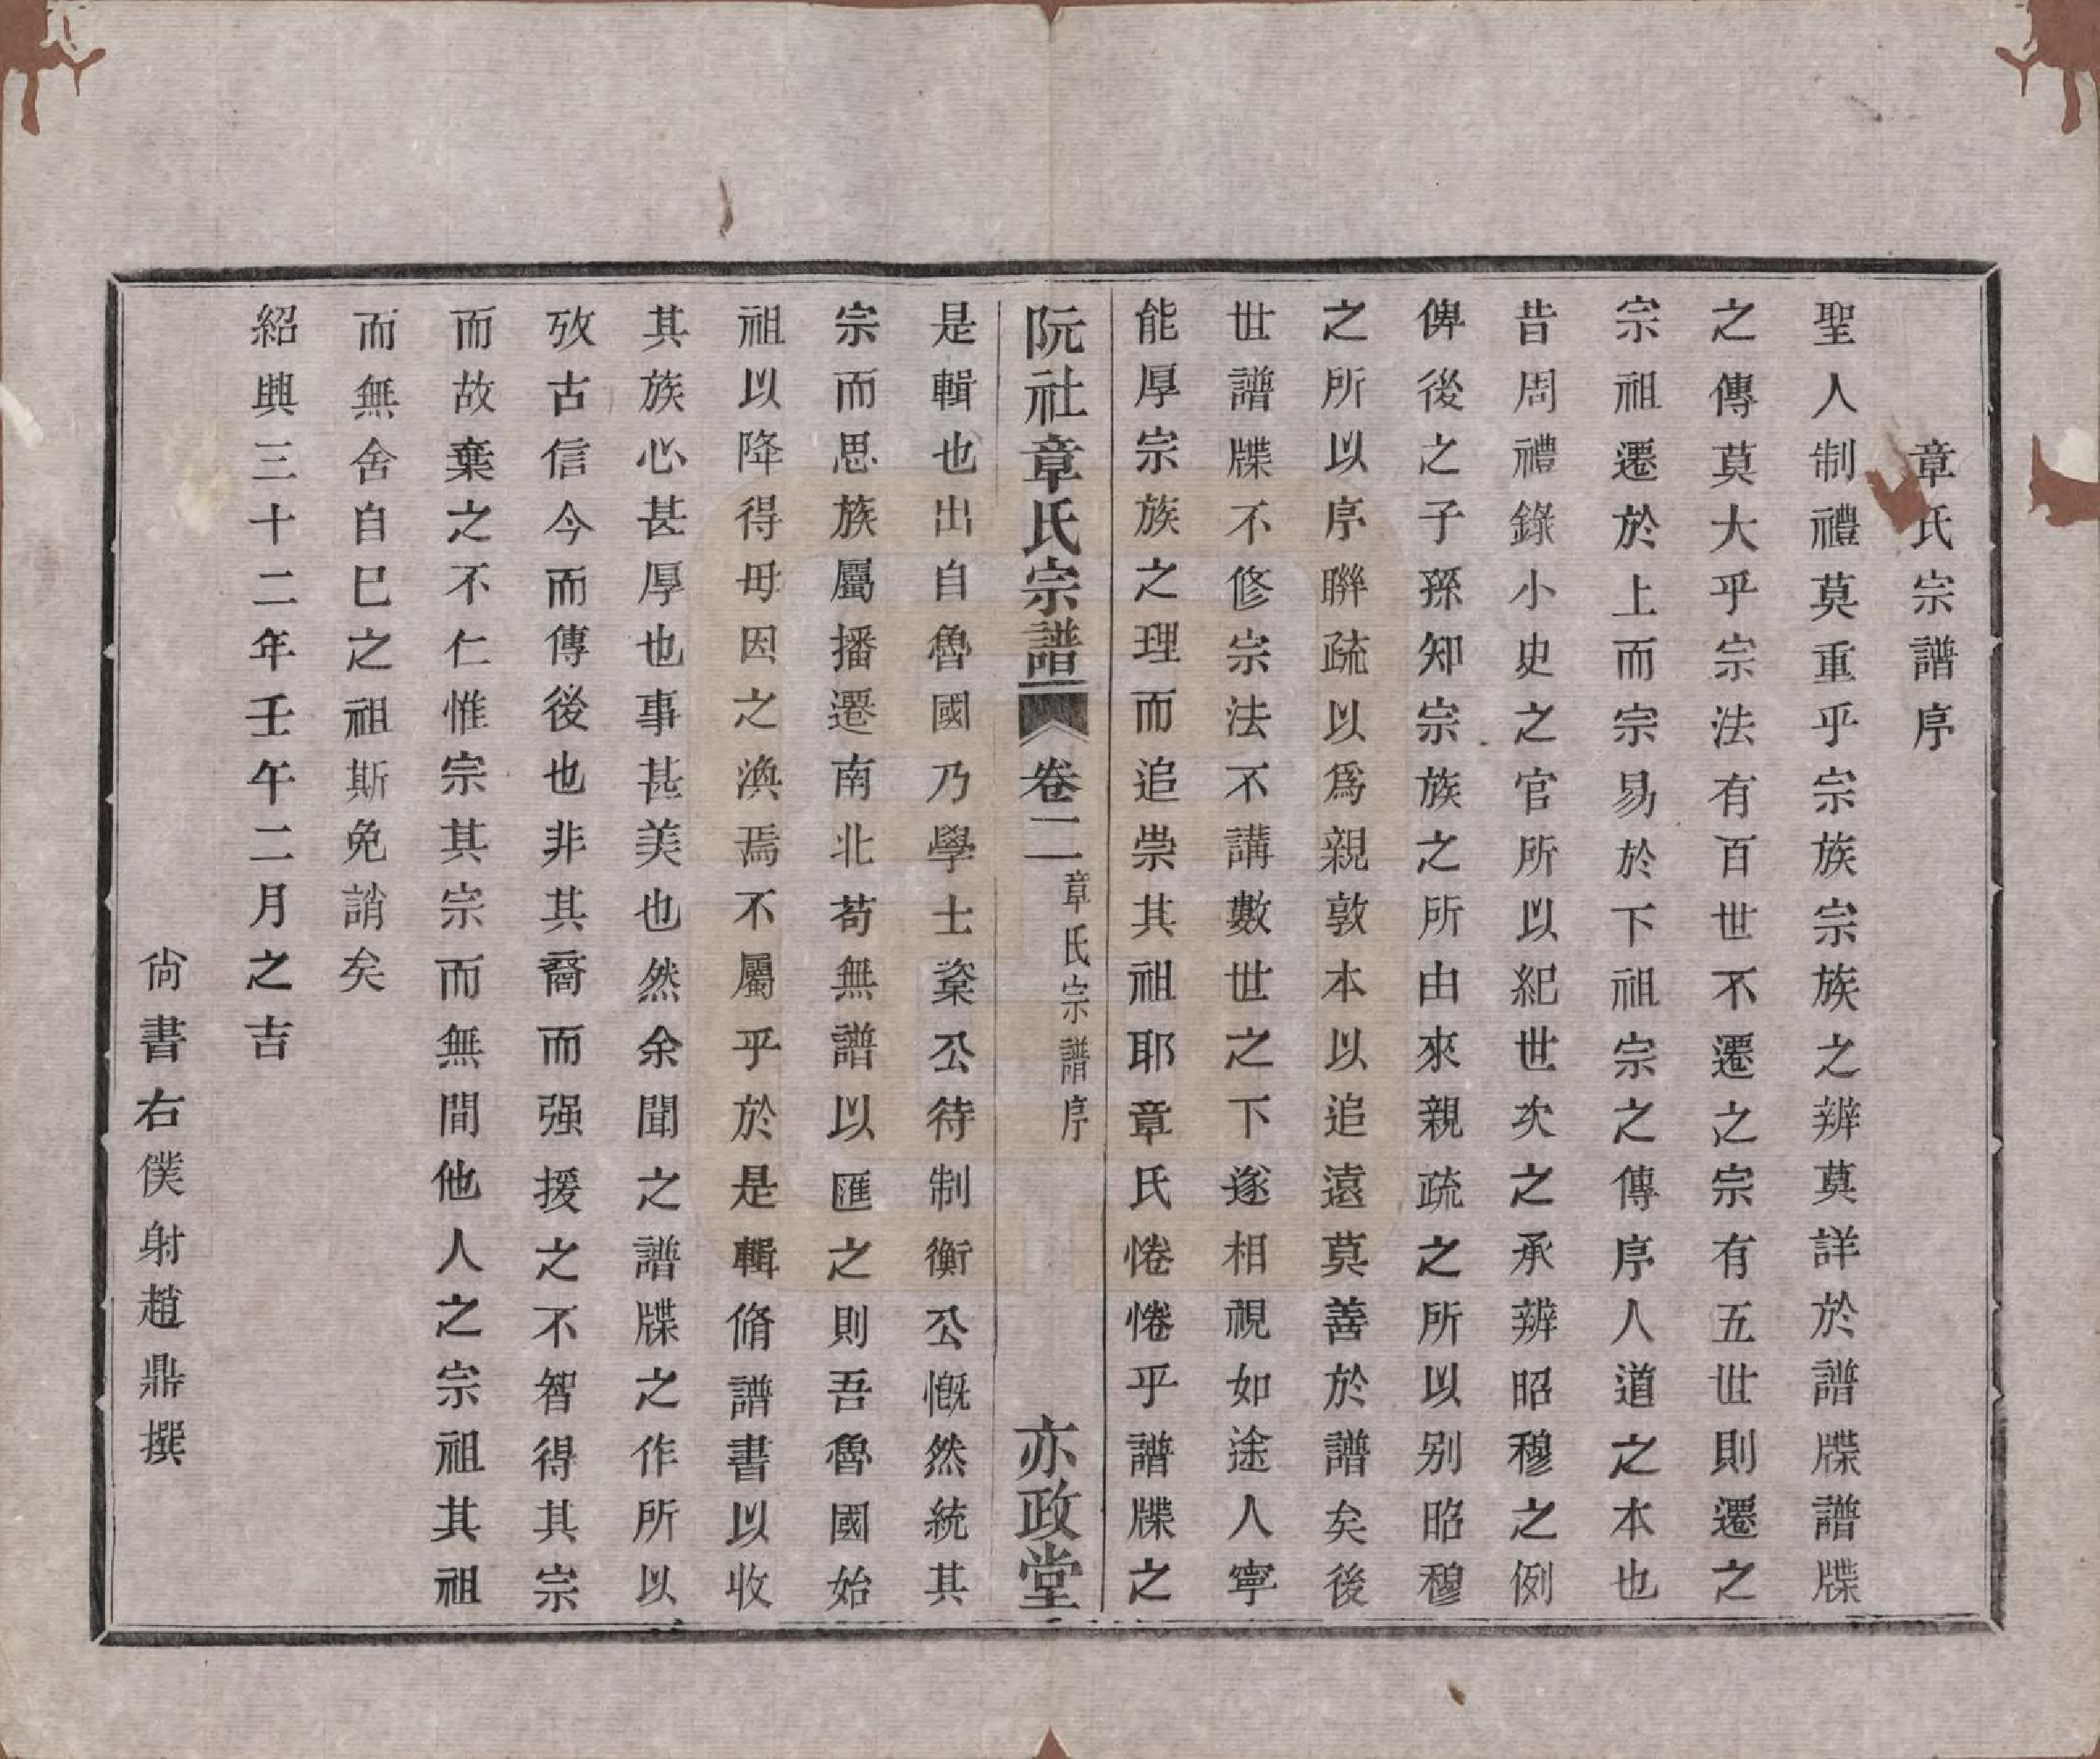 章氏宗譜序
聖人制禮莫重乎宗族宗族之辨莫詳於譜牒譜牒
之傳莫大乎宗法有百世不遷之宗有五世則遷之
宗祖遷於上而宗易於下祖宗之傳序人道之本也
昔周禮錄小史之官所以紀世次之承辨昭穆之例
俾後之子孫知宗族之所由來親疏之所以别昭穆
之所以序聯疏以爲親敦本以追遠莫善於譜矣後
世譜牒不修宗法不講數世之下遂相視如途人寧
能厚宗族之理而追崇其祖耶章氏惓惓乎譜牒之
阮社章氏宗譜 卷二 章氏宗譜序 亦政堂
是輯也出自魯國乃學士楶公待制衡公慨然統其
宗而思族屬播遷南北苟無譜以匯之則吾魯國始
祖以降得毋因之渙焉不屬乎於是輯脩譜書以收
其族心甚厚也事甚美也然余聞之譜牒之作所以
攷古信今而傳後也非其裔而强援之不智得其宗
而故棄之不仁惟宗其宗而無間他人之宗祖其祖
而無舍自巳之祖斯免誚矣
紹興三十二年壬午二月之吉
尙書右僕射趙鼎撰